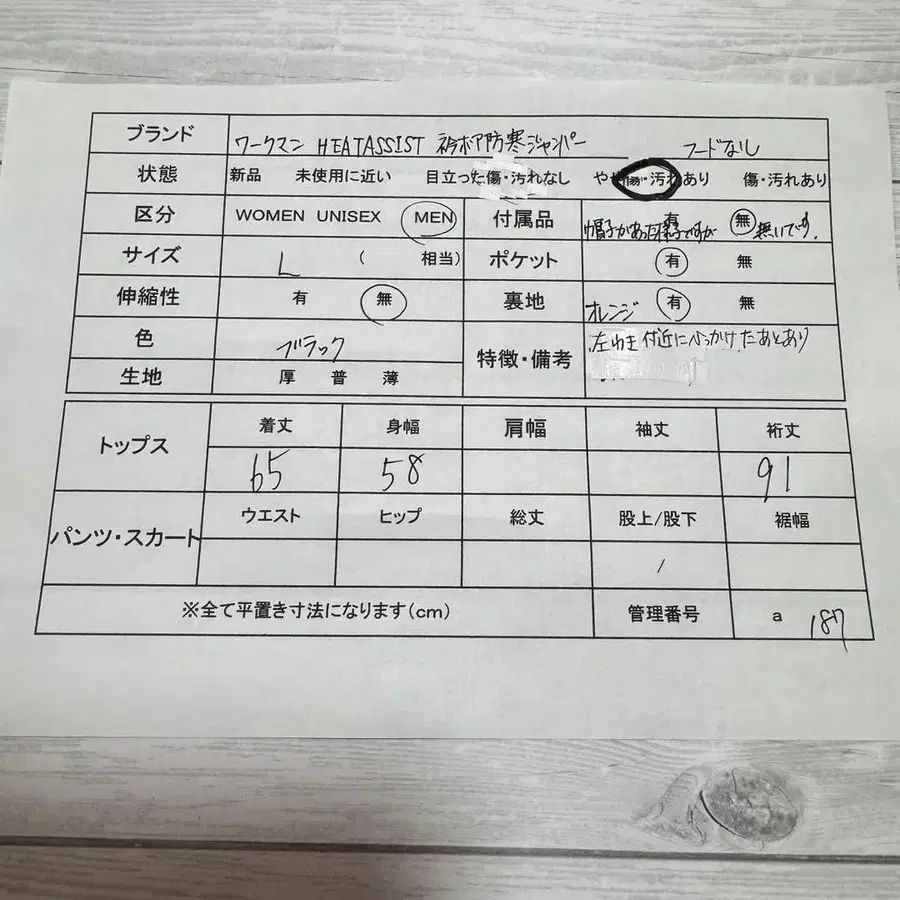 ブランド ワークマン HEATASSIST 衿ボア防寒ジャンパー フードなし
状態 新品 未使用に近い 目立った傷・汚れなし やや傷・汚れあり 傷・汚れあり
区分 WOMEN UNISEX MEN 付属品 有 無
帽子があった様子ですが 無いです。
サイズ L ( 相当) ポケット 有 無
伸縮性 有 無 裏地 オレンジ 有 無
色 ブラック 特徴・備考 左わき付近にひっかけたあとあり
生地 厚 普 薄
トップス 着丈 身幅 肩幅 袖丈 裄丈
65 58 91
パンツ・スカート ウエスト ヒップ 総丈 股上/股下 裾幅
/
※全て平置き寸法になります(cm) 管理番号 a 187